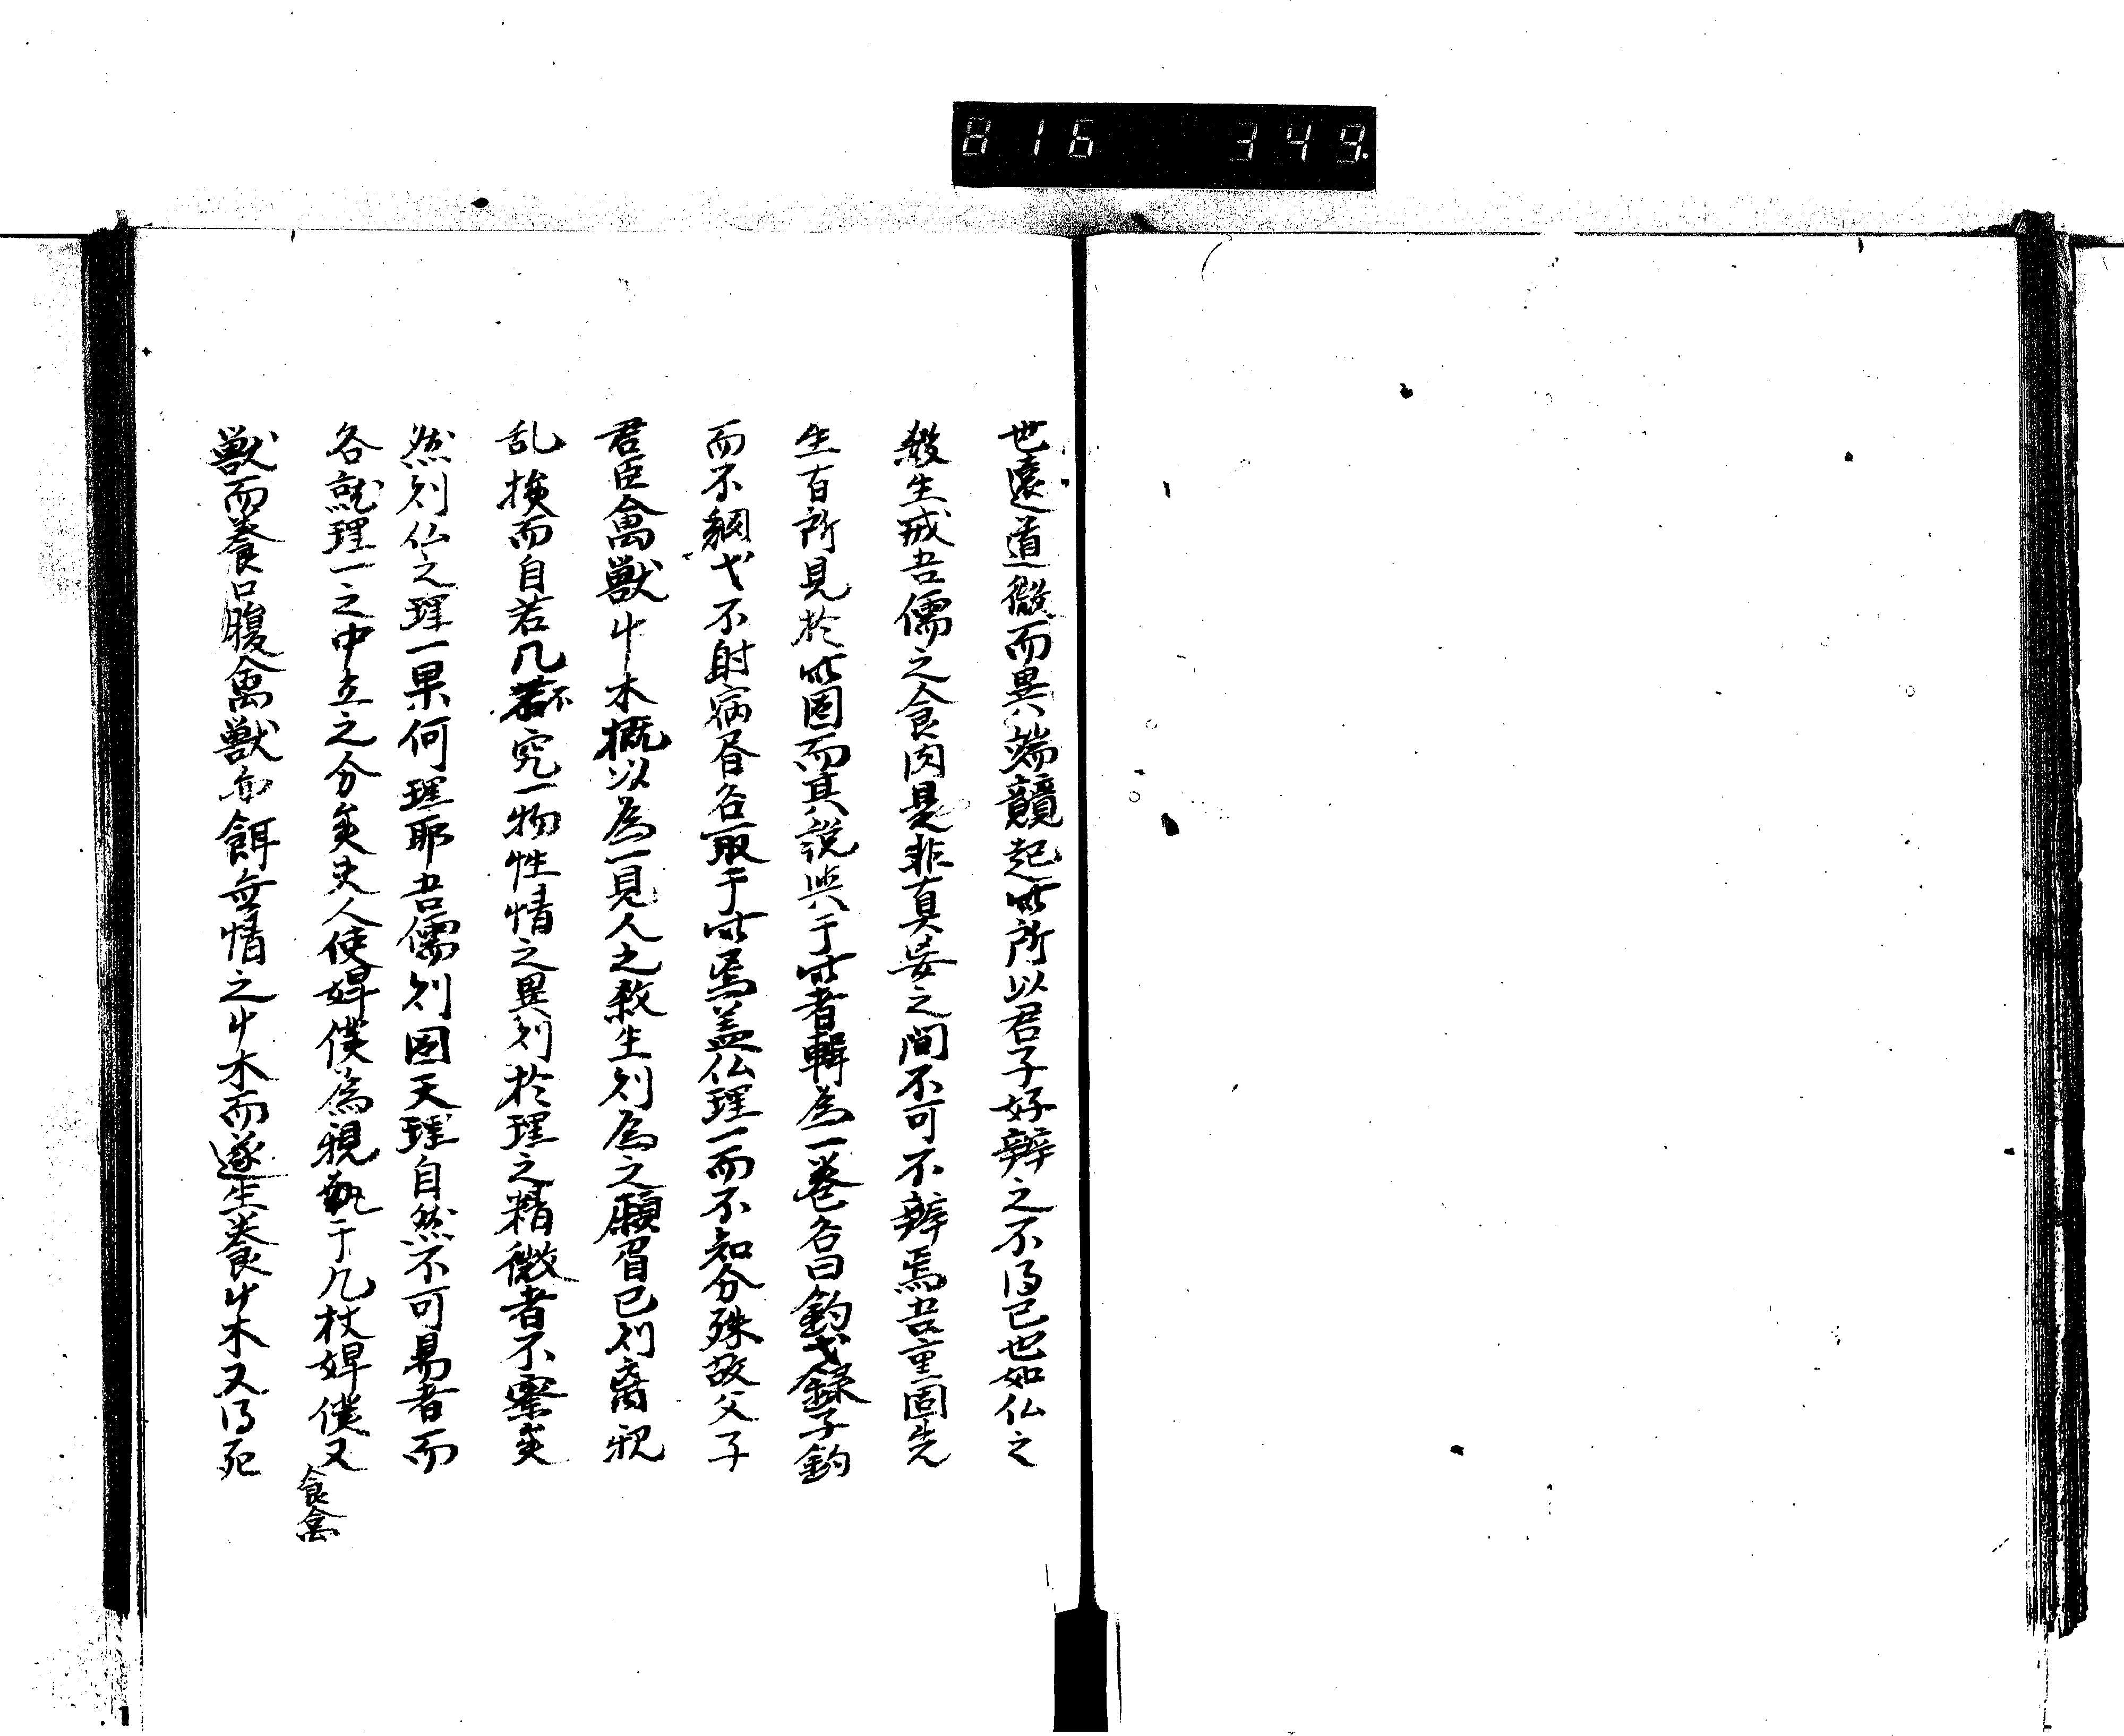 816 349.
世遠道微而異端競起此所以君子好辨之不得已也如仏之
殺生戒吾儒之食肉是非真妄之間不可不辨焉吾重固先
生百所見於此因而其説與于此者輯為一巻名曰釣弋録子釣
而不綱弋不射宿眉名取于此焉盖仏理一而不知分殊故父子
君臣禽獣艸木概以為一見人之殺生則為之顰眉已則
乱 而自若凡不究一物性情之異則於理之精微者不察矣
然則仏之理一果何理耶吾儒則因天理自然不可易者而
各就理一之中立之分矣夫人使婢僕為親執于几杖婢僕又食禽
獣而養口腹禽獣亦餌無情之艸木而遂生養艸木又得死